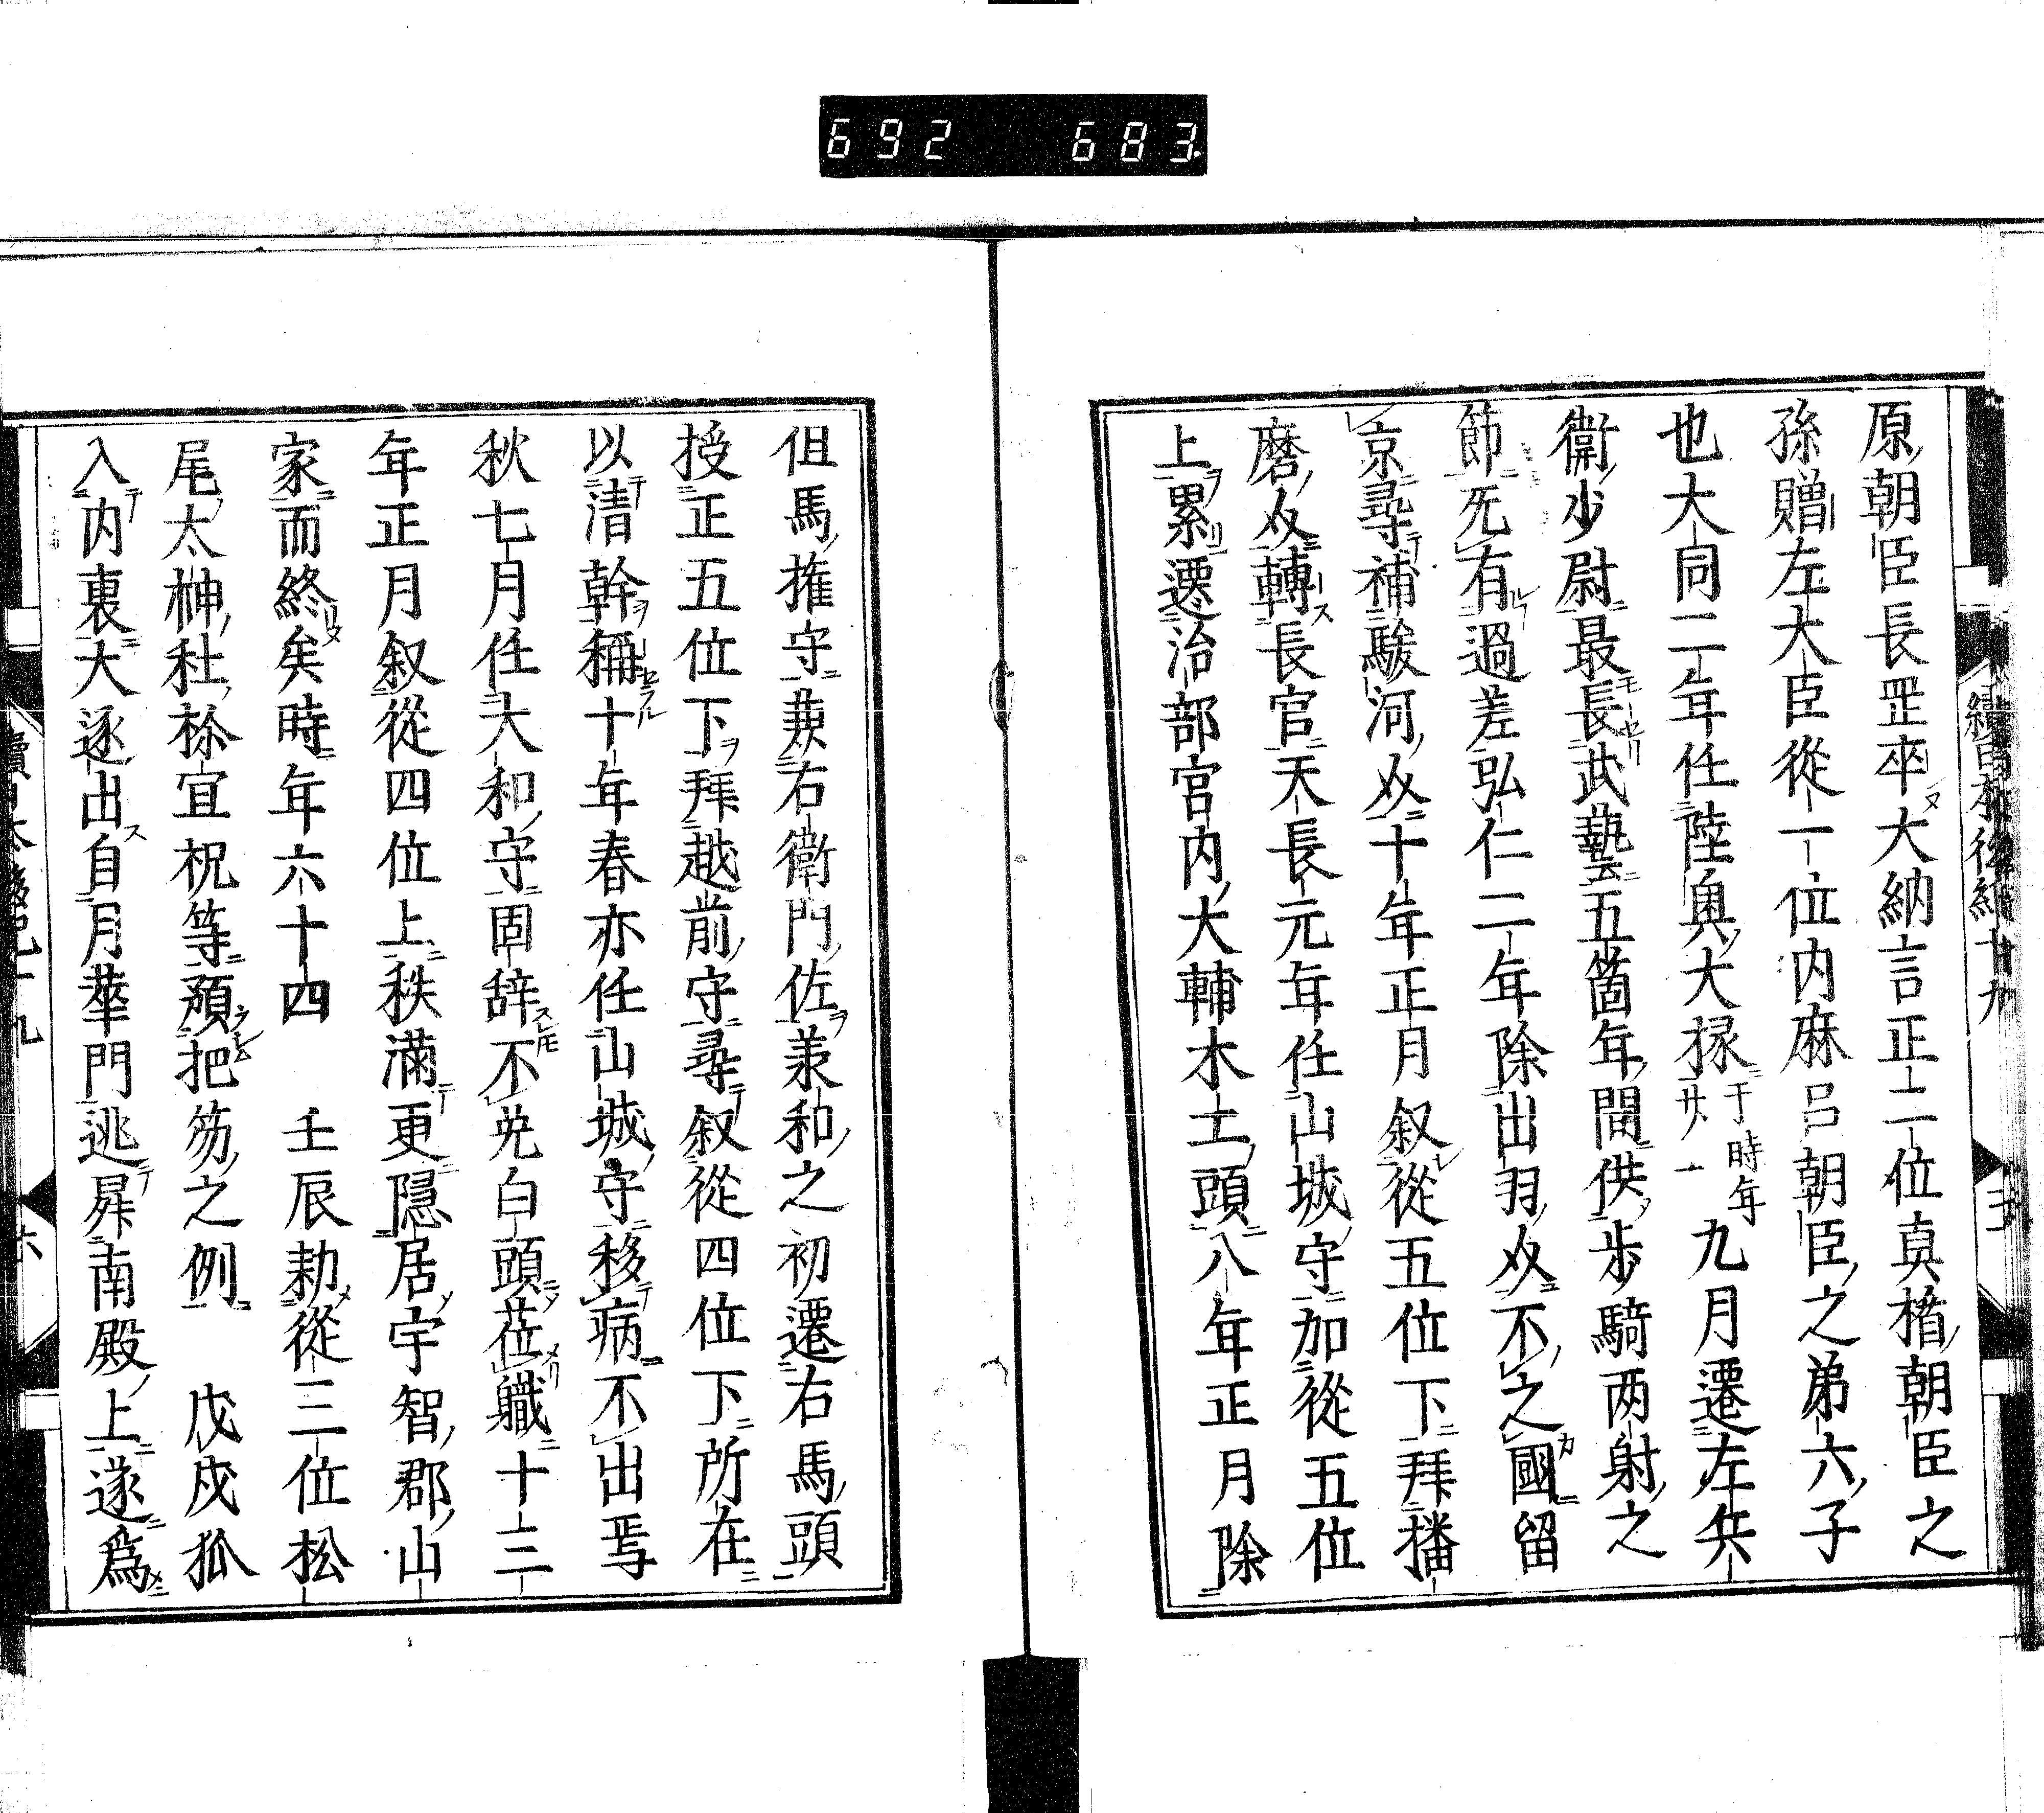 692 683
原朝臣長罡卒大納言正二位真楯朝臣之
孫贈左大臣從一位内麻呂朝臣之弟六子
也大同二年任陸奥大掾于時年廿一九月遷左兵
衛少尉最長武藝五箇年間供歩騎两射之
節无有過差弘仁二年除出羽㕛不之國留
京尋補駿河㕛十年正月叙從五位下拜播
磨㕛轉長官天長元年任山城守加從五位
上累遷治部宮内大輔木工頭八年正月除
但馬搉守兼右衛門佐羕和之初遷右馬頭
授正五位下拜越前守尋叙從四位下所在
以清幹稱十年春亦任山城守移病不出焉
秋七月任大和守固辞不免白頭莅軄十二
年正月叙從四位上秩滿更隱居宇智郡山
家而終矣時年六十四 壬辰勅從三位松
尾太神社祢宜祝等預把笏之例 戊戌狐
入内裏大逐出自月華門逃昇南殿上遂爲